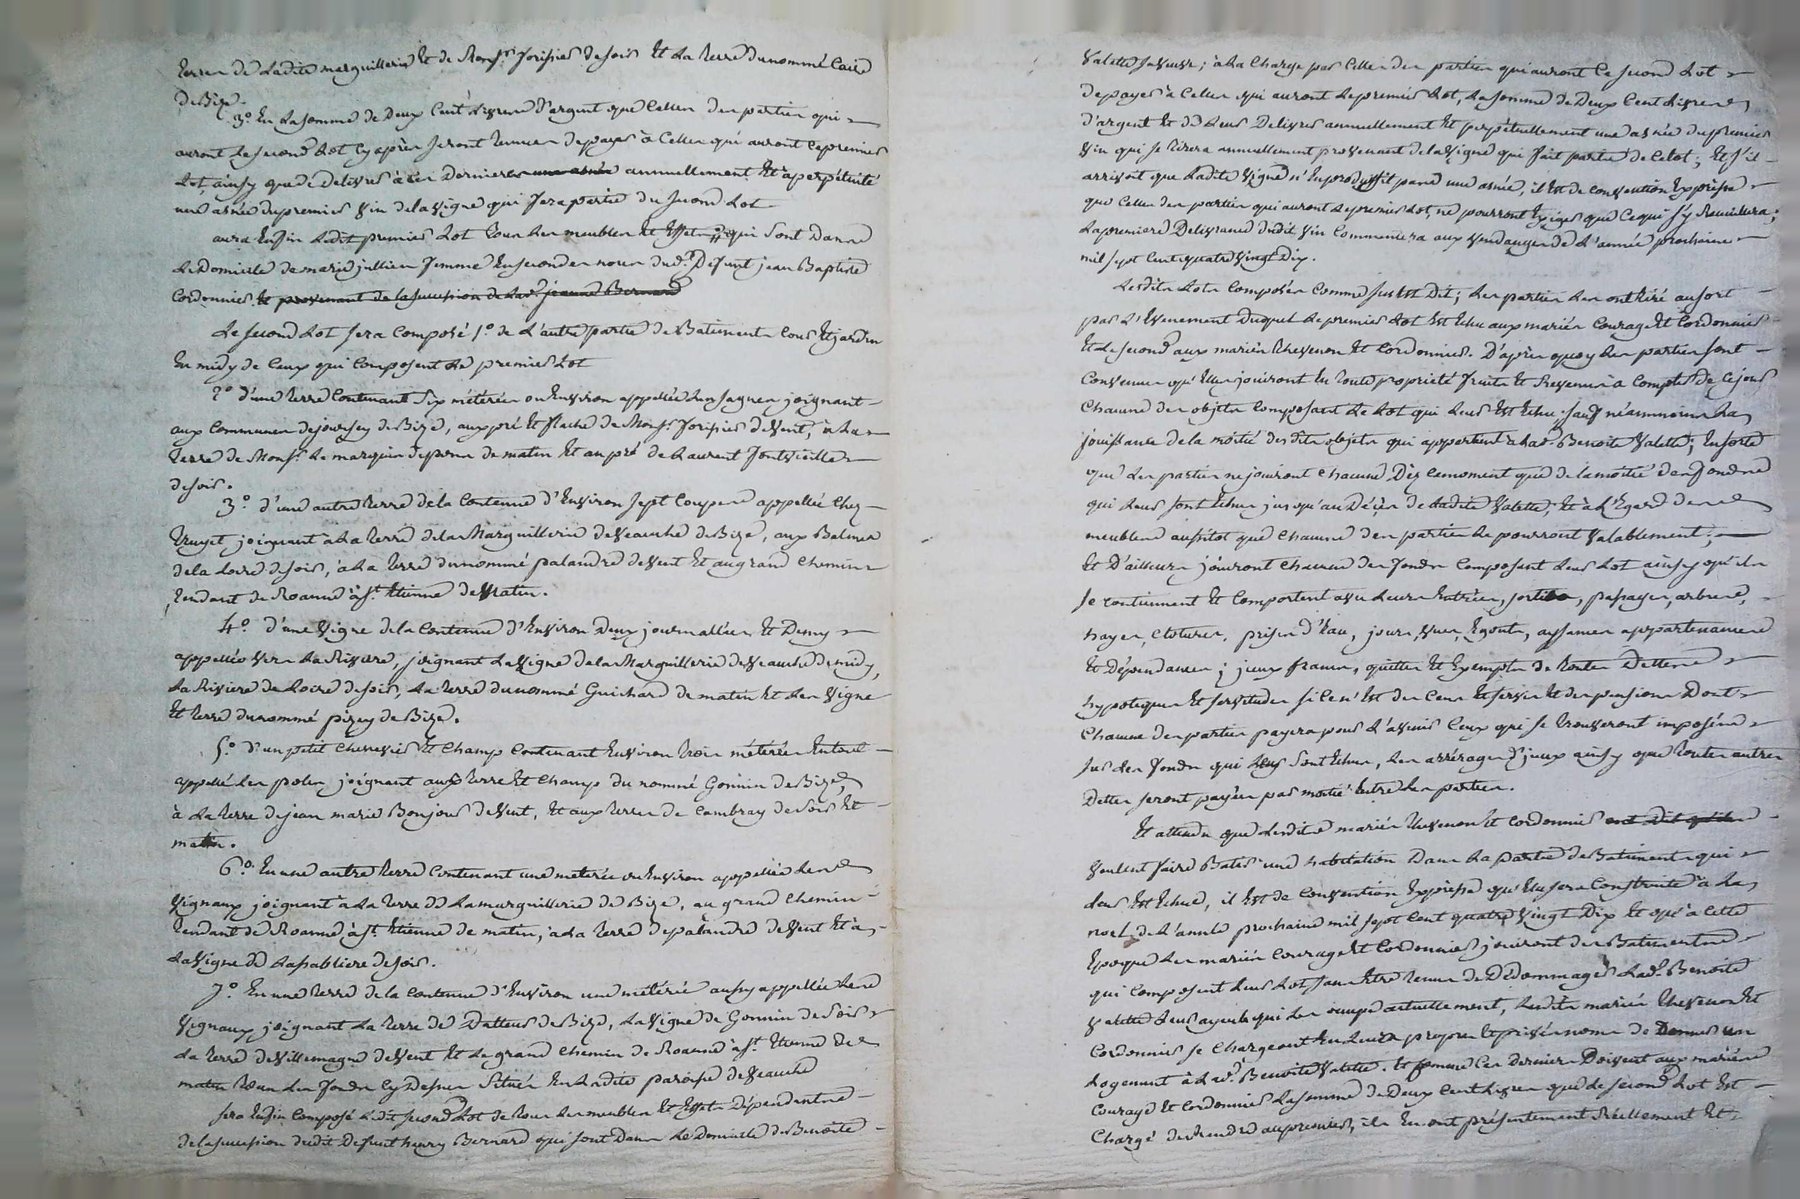 terres de ladite marguillerie Et de Monsr. forisier de soir Et La terre du nommé Caire
de Bizé.
3.º En La somme de Deux Cent Livres d'argent que Celles des parties qui
auront Le second Lot cy après seront tenues de payer à Celles qui auront Le premier
Lot, ainsy que de Delivrer à ces Dernieres une asnée annuellement Et à perpétuité
une asnée du premier vin de la vigne qui fera partie du second Lot
aura Enfin Ledit premier Lot tous Les meubles Et Effets qui sont dans
Le Domicile de marie jullien femme En secondes noces dud. Defunt jean Baptiste
Cordonnier Et provenant de la succession de Lad. jeanne Bernard
Le second Lot sera Composé 1.º de L'autre partie de Batiments Cour Et jardin
En midy de Ceux qui Composent Le premier Lot
2.º d'une terre Contenant Six méterées ou Environ appellée Les sagnes joignant
aux Communes de joursey de Bizé, aux pré Et flache de Monsr. forisier de vent, à La
terre de Monsr. Le marquis de pons de matin Et au pré de Laurent fontvieille
de soir.
3.º d'une autre terre de la Contenue d'Environ sept Coupes appellée Chez
truyet, joignant à La terre de la Marguillerie de Veauche de Bize, aux Balmes
de la Loire de soir, à La terre du nommé palandre de vent Et au grand Chemin
tendant de Roanne à St. Etienne de Matin.
4.º d'une vigne de la Contenue d'Environ Deux journallées Et Demy
appellée vers La Riviere, joignant La vigne de la Marguillerie de Veauche de midy,
La Riviere de Loire de soir, La terre du nommé Guichard de matin Et Les vigne
Et terre du nommé pizey de Bize.
5.º d'un petit Chenevier Et Champ Contenant Environ trois méterées En tout
appellé Les poles, joignant aux terre Et Champ du nommé Gonnin de Bize,
à La terre de jean marie Bonjour de vent, Et aux terres de Cambray de soir Et
matin.
6.º En une autre terre Contenant une meterée ou Environ appellée Les
vignaux joignant à La terre de La marguillerie de Bize, au grand Chemin
tendant de Roanne à St. Etienne de matin, à La terre de palandre de vent Et à
La vigne de La sabliere de soir.
7.º En une terre de la Contenue d'Environ une méterée aussy appellée Les
vignaux joignant La terre de Datteur de Bize, La vigne de Gonnin de soir
La terre de villemagne de vent Et Le grand Chemin de Roanne à St. Etienne de
matin tous Les fonds Cy Dessus Situés En Ladite paroisse de Veauche
sera Enfin Composé Ledit second Lot de tous Les meubles Et Effets Dépendants
de la succession dudit Defunt henry Bernard qui sont Dans Le Domicile de Benoite
Valette sa veuve; à La Charge par Celles des parties qui auront Le second Lot
de payer à Celles qui auront Le premier Lot, La somme de Deux Cent Livres
d'argent Et de Leur Delivrer annuellement Et perpétuellement une asnée du premier
vin qui se tirera annuellement provenant de la vigne qui fait partie de Ce Lot; Et s'il
arrivoit que Ladite vigne n'En produisit pas une asnée, il Est de Convention Expresse
que Celles des parties qui auront Le premier Lot, ne pourront Exiger que Ce qui s'y Recueillera;
La premiere Delivrance dudit vin Commencera aux vendanges de L'année prochaine
mil sept Cent quatre vingt Dix.
Lesdits Lots Composés Comme sus Est Dit; Les parties Les ont tiré au sort
par L'Evenement Duquel Le premier Lot Est Echu aux mariés Courage Et Cordonnier
Et Le second aux mariés thevenon Et Cordonnier. D'après quoy Les parties sont
Convenues qu'Elles jouiront En toute propriété fruits Et Revenus à Compter de Ce jour
Chacune des objets Composant Le Lot qui Leur Est Echu, sauf néanmoins La
jouissance de la moitié desdits objets qui appartient à Lad. Benoite Valette; En sorte
que Les parties ne jouiront Chacune Dès Ce moment que de la moitié des fonds
qui Leur sont Echus jusqu'au Décès de Ladite Valette, Et à L'Egard des
meubles aussitot que Chacune des parties Le pourront valablement;
Et D'ailleurs jouiront Chacune des fonds Composant Leur Lot ainsy qu'ils
se Contiennent Et Comportent avec Leurs Entrées, sorties, passages, arbres,
hayes, Clotures, prises d'Eau, jours, vues, Egouts, aysances appartenances
Et Dépendances; iceux francs, quittes Et Exempts de toutes Dettes
hypoteques Et servitudes si Ce n'Est des Cens Et servis Et des pensions Dont
Chacune des parties payera pour L'avenir Ceux qui se trouveront imposés
sur Les fonds qui Leur sont Echus, Les arrérages d'jceux ainsy que toutes autres
Dettes seront payées par moitié Entre Les parties.
Et attendu que Lesdits mariés thevenon Et Cordonnier ont Dit qu'ils
veulent faire Batir une habitation Dans La partie de Batiments qui
Leur Est Echue, il Est de Convention Expresse qu'Elle sera Construite à La
noel de L'année prochaine mil sept Cent quatre vingt Dix Et qu'à Cette
Epoque Les mariés Courage Et Cordonnier jouiront des Batiments
qui Composent Leur Lot sans Etre tenus de Dédommager Lad. Benoite
Valette Leur ayeule qui Les occupe actuellement, Lesdits mariés thevenon Et
Cordonnier se Chargeant En Leurs propres Et privés noms de Donner un
Logement à Lad. Benoite Valette. Et Comme Ces derniers Doivent aux mariés
Courage Et Cordonnier La somme de Deux Cent Livres que Le second Lot Est
Chargé de Rendre au premier, ils En ont présentement Réellement Et